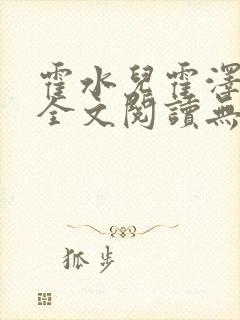 霍水兒霍澤
全文閱讀無
狐步